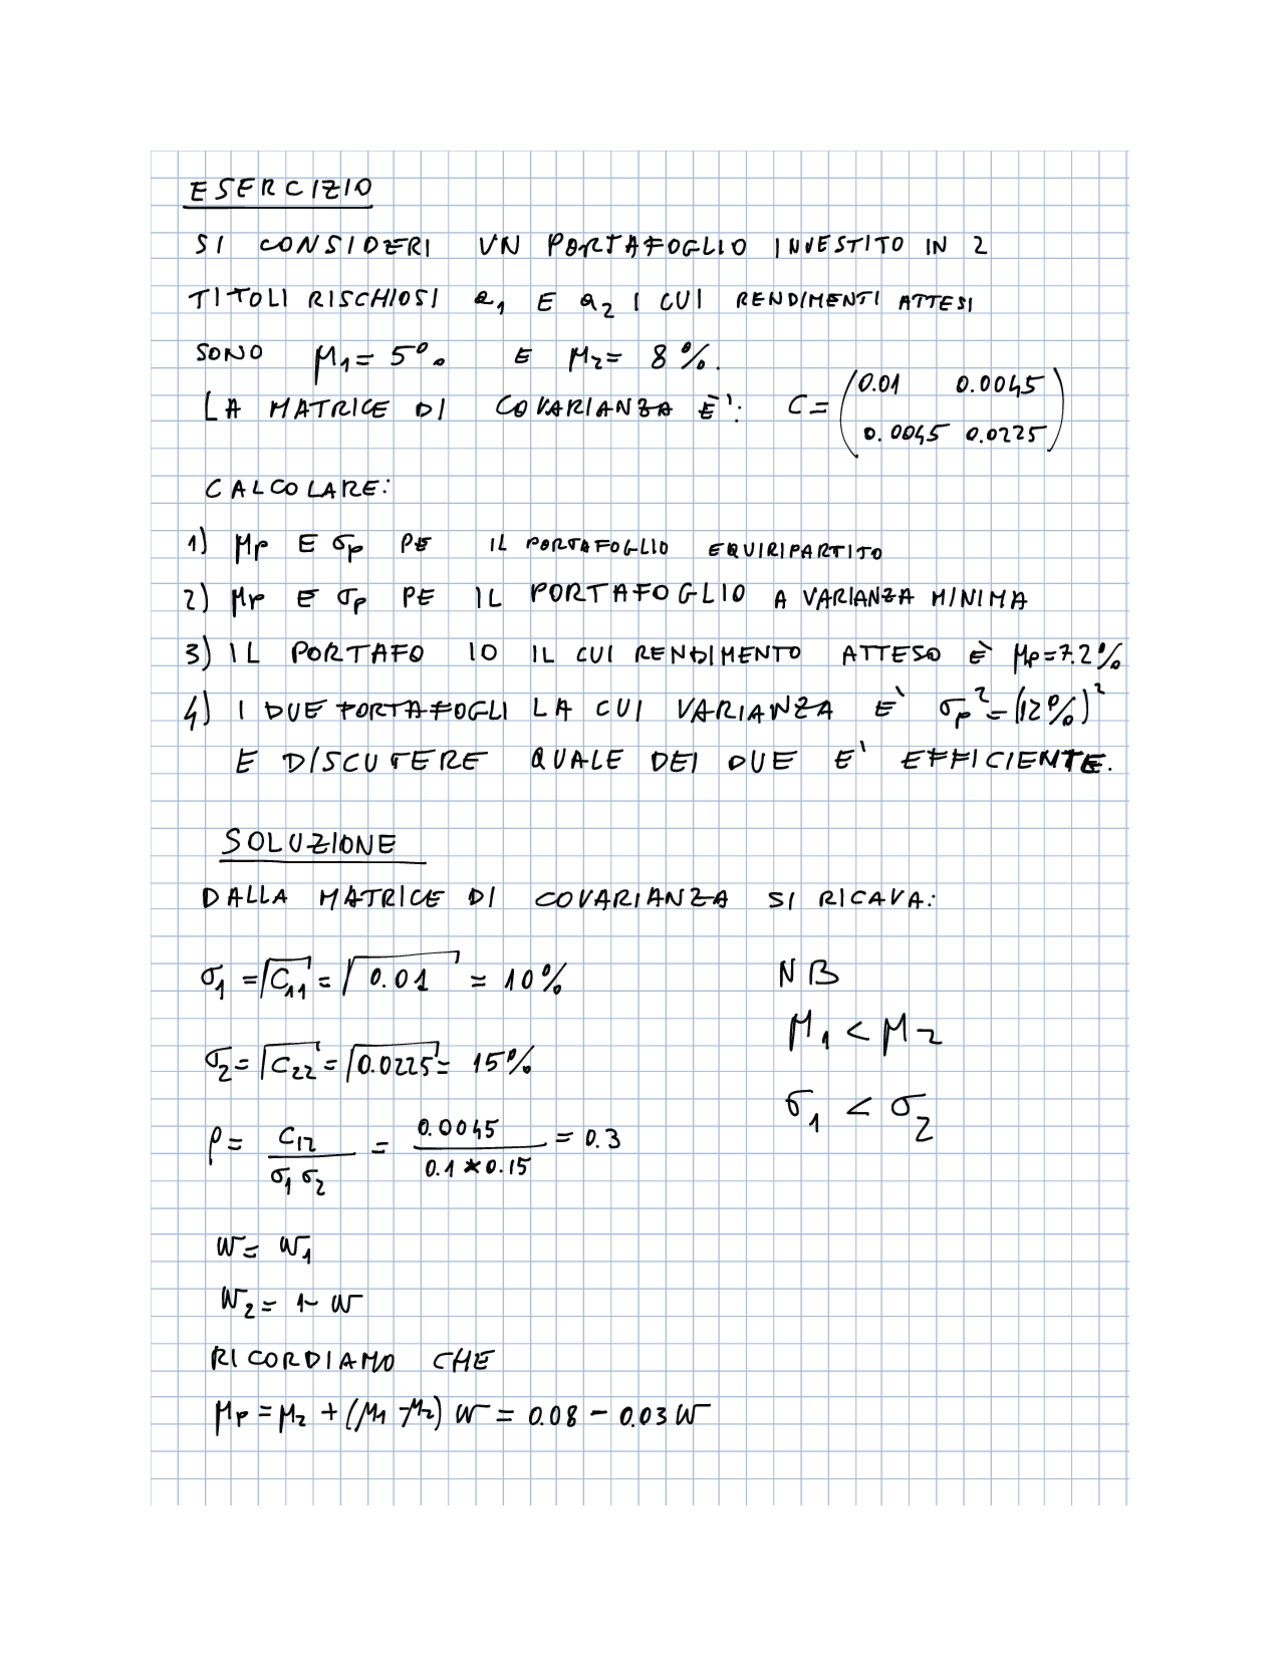 ESERCIZIO
SI CONSIDERI UN PORTAFOGLIO INVESTITO IN 2
TITOLI RISCHIOSI a₁ E a₂ I CUI RENDIMENTI ATTESI
SONO μ₁ = 5% E μ₂ = 8%.
LA MATRICE DI COVARIANZA È: C = (0.01 0.0045
0.0045 0.0225)
CALCOLARE:
1) μp E σp PE IL PORTAFOGLIO EQUIRIPARTITO
2) μp E σp PE IL PORTAFOGLIO A VARIANZA MINIMA
3) IL PORTAFO IO IL CUI RENDIMENTO ATTESO È μp = 7.2%
4) I DUE PORTAFOGLI LA CUI VARIANZA E' σp² = (12%)²
E DISCUTERE QUALE DEI DUE E' EFFICIENTE.
SOLUZIONE
DALLA MATRICE DI COVARIANZA SI RICAVA:
σ₁ = √C₁₁ = √0.01 = 10%
σ₂ = √C₂₂ = √0.0225 = 15%
ρ = C₁₂ / σ₁ σ₂ = 0.0045 / 0.1 * 0.15 = 0.3
NB
μ₁ < μ₂
σ₁ < σ₂
W = W₁
W₂ = 1 - W
RICORDIAMO CHE
μp = μ₂ + (μ₁ - μ₂) W = 0.08 - 0.03 W